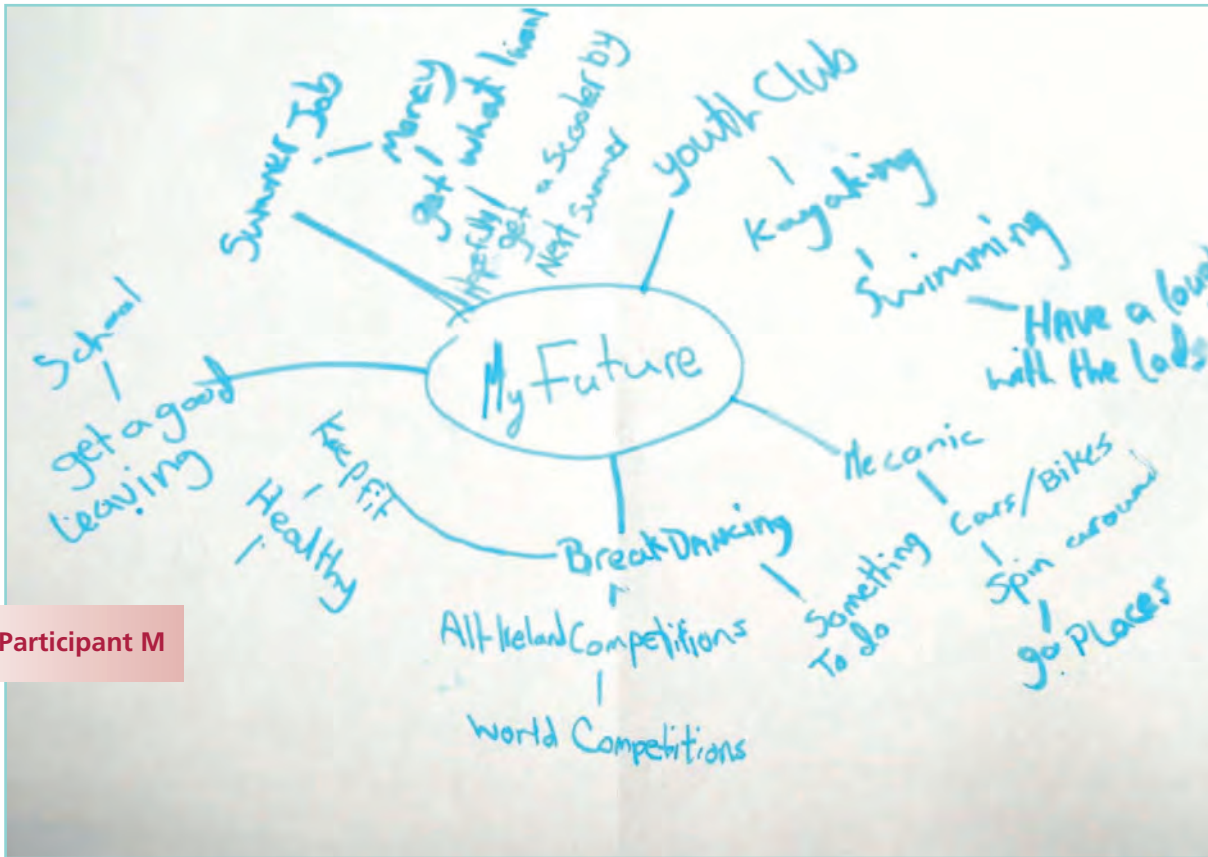 Summer Job
Money
get what I want
Hopefully
get
a Scooter by
Next Summer
youth Club
Kayaking
Swimming
HAVE a
with the Lads
School
get a good
Leaving
My Future
Mecanic
Cars/Bikes
Spin around
go Places
Keep fit
Healthy
BreakDancing
Something
To do
All-Ireland Competitions
World Competitions
Participant M